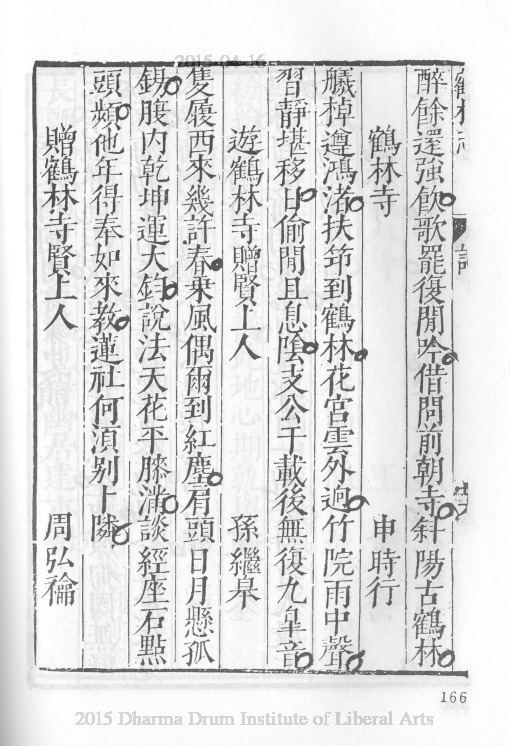 2015-04-16
鶴林志
詩
醉餘還強飲歌罷復閒吟借問前朝寺斜陽古鶴林
鶴林寺 申時行
艤棹遵鴻渚扶笻到鶴林花宮雲外迥竹院雨中聲
習靜堪移日偷閒且息陰支公千載後無復九臯音
遊鶴林寺贈賢上人 孫繼皋
隻履西來幾許春乗風偶爾到紅塵肩頭日月懸孤
錫腹内乾坤運大鈞說法天花平膝滿談經座石點
頭頻他年得奉如來教蓮社何湏别卜隣
贈鶴林寺賢上人 周弘禴
166
2015 Dharma Drum Institute of Liberal Arts